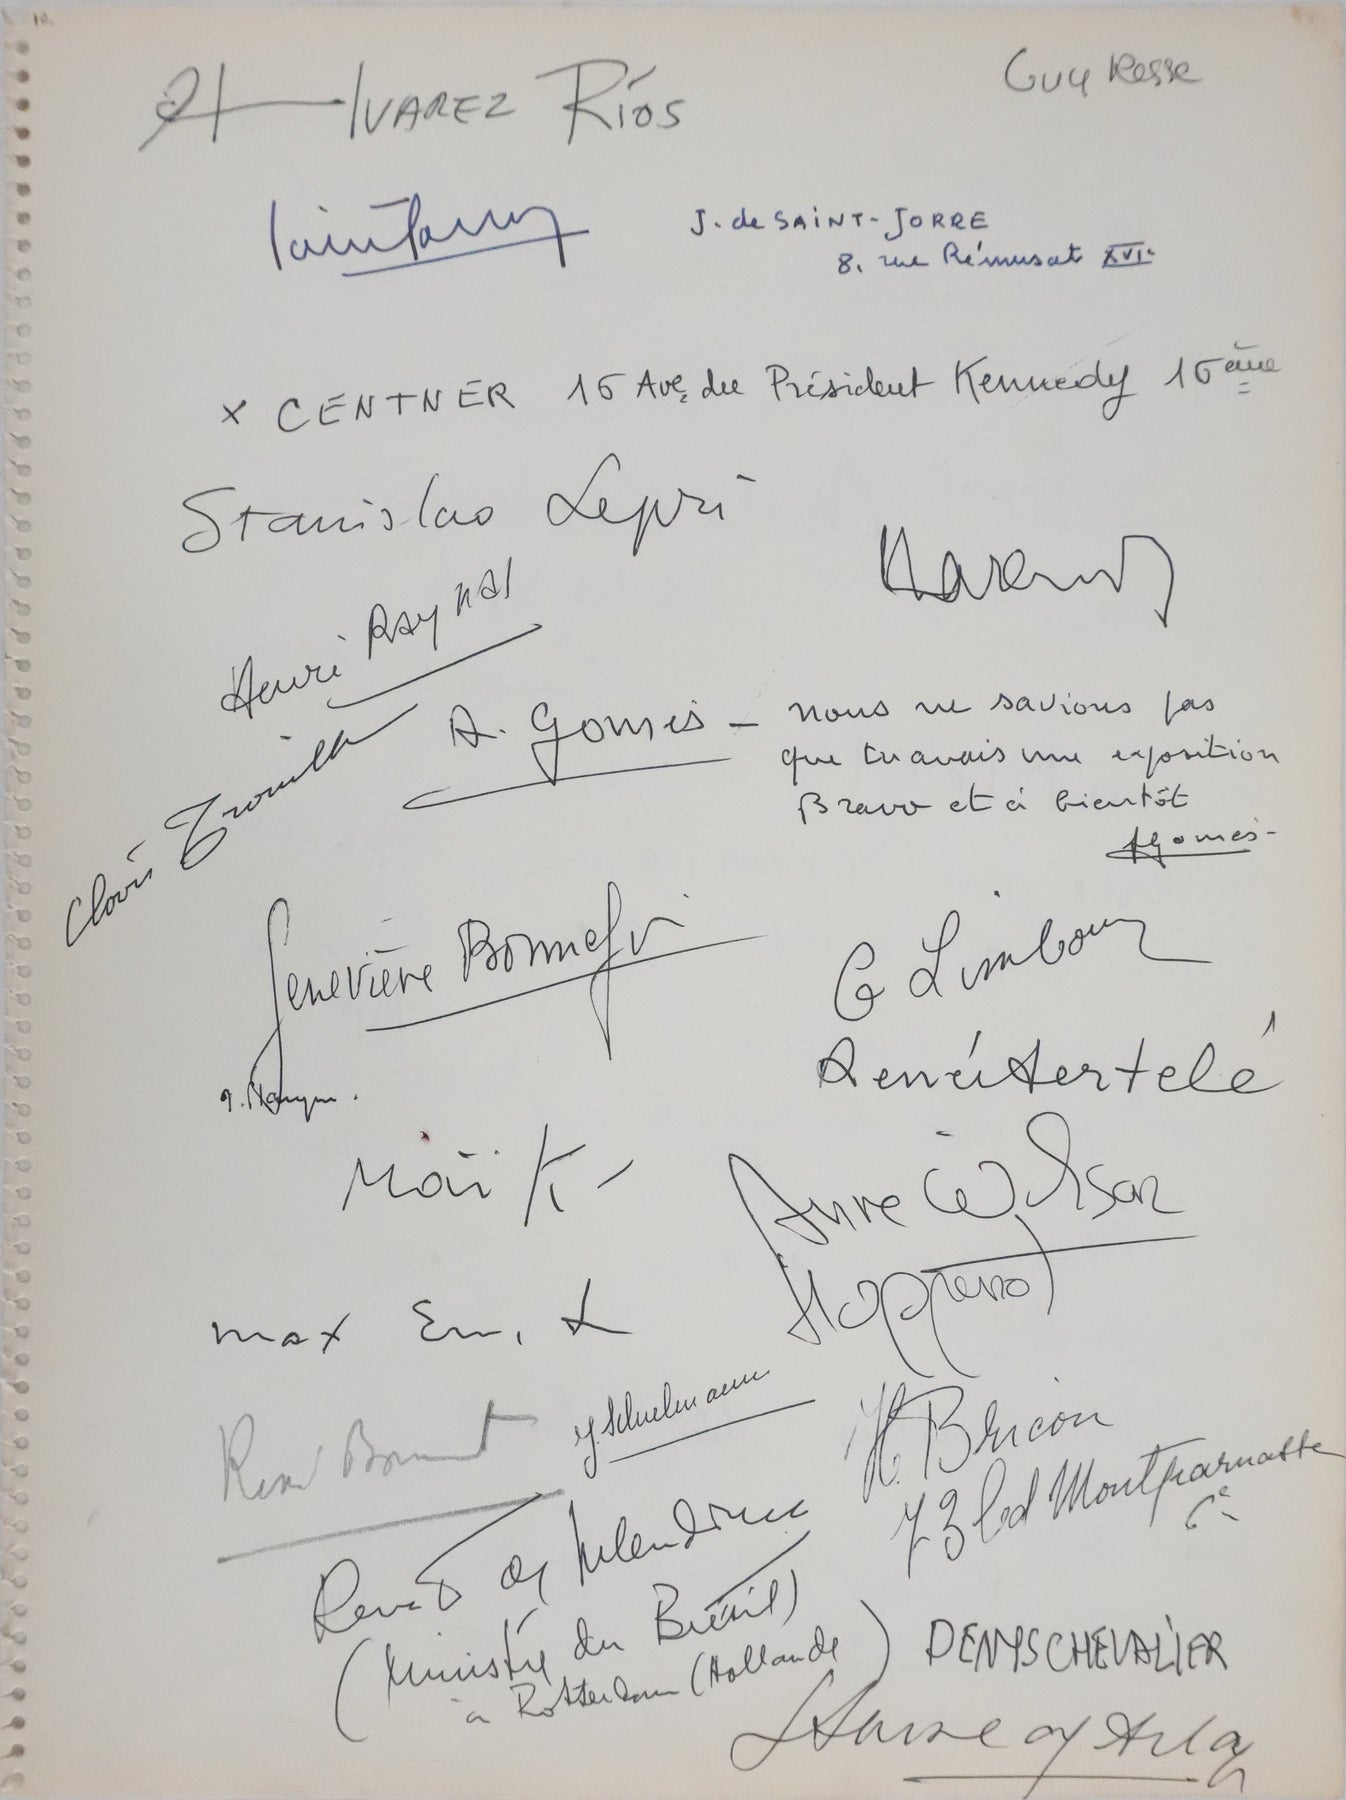 Alvarez Ríos
Guy Resse
J. de SAINT-JORRE
8, rue Rémusat XVIe
x CENTNER 16 Ave du Président Kennedy 16ème
Stanislao Lepri
Henri Raynal
A. Gomès - nous ne savions pas
que tu avais une exposition
Bravo et à bientôt
AGomès-
Clovis Trouille
Geneviève Bonnefoi
G Limbour
René Bertelé
Anne Wilson
Hoppenot
max Ernst
J. Schulmann
H. Bricon
73 bd Montparnasse
6e
de
(Ministre du Brésil)
à Rotterdam (Hollande)
DENYS CHEVALIER